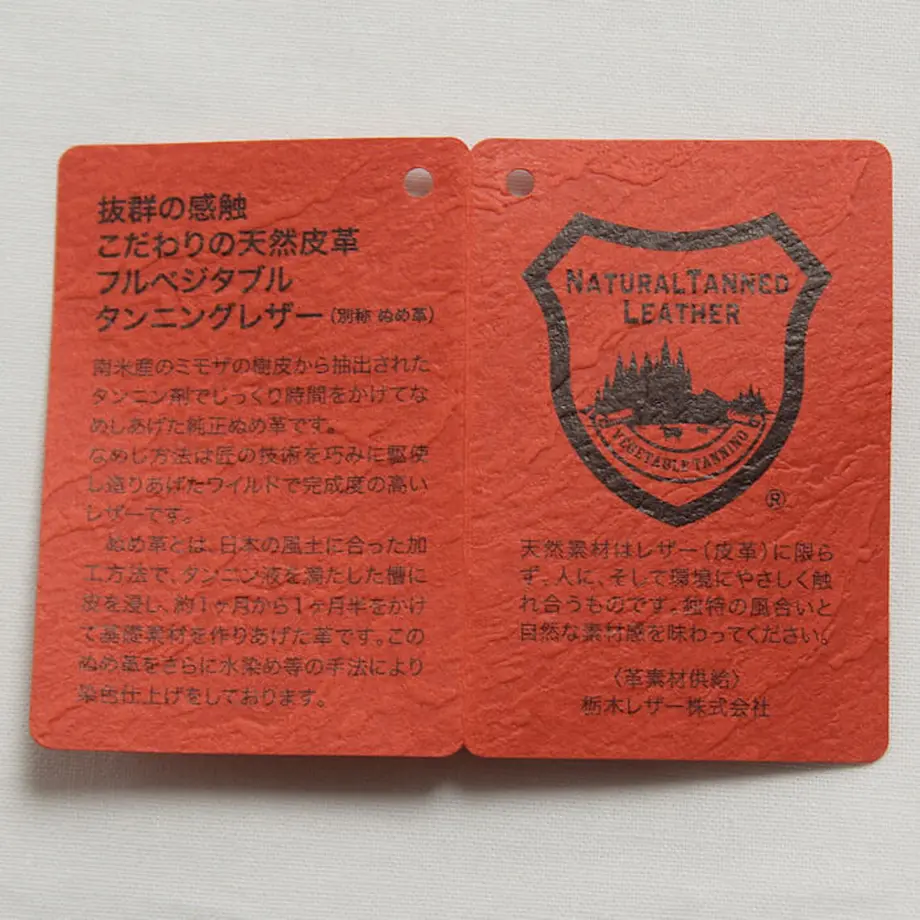 抜群の感触
こだわりの天然皮革
フルベジタブル
タンニングレザー（別称 ぬめ革）
南米産のミモザの樹皮から抽出された
タンニン剤でじっくり時間をかけてな
めしあげた純正ぬめ革です。
なめし方法は匠の技術を巧みに駆使
し造りあげたワイルドで完成度の高い
レザーです。
ぬめ革とは、日本の風土に合った加
工方法で、タンニン液を満たした槽に
皮を浸し、約1ヶ月から1ヶ月半をかけ
て基礎素材を作りあげた革です。この
ぬめ革をさらに水染め等の手法により
染色仕上げをしております。
NATURAL TANNED
LEATHER
VEGETABLE TANNING
®
天然素材はレザー（皮革）に限ら
ず、人に、そして環境にやさしく触
れ合うものです。独特の風合いと
自然な素材感を味わってください。
〈革素材供給〉
栃木レザー株式会社